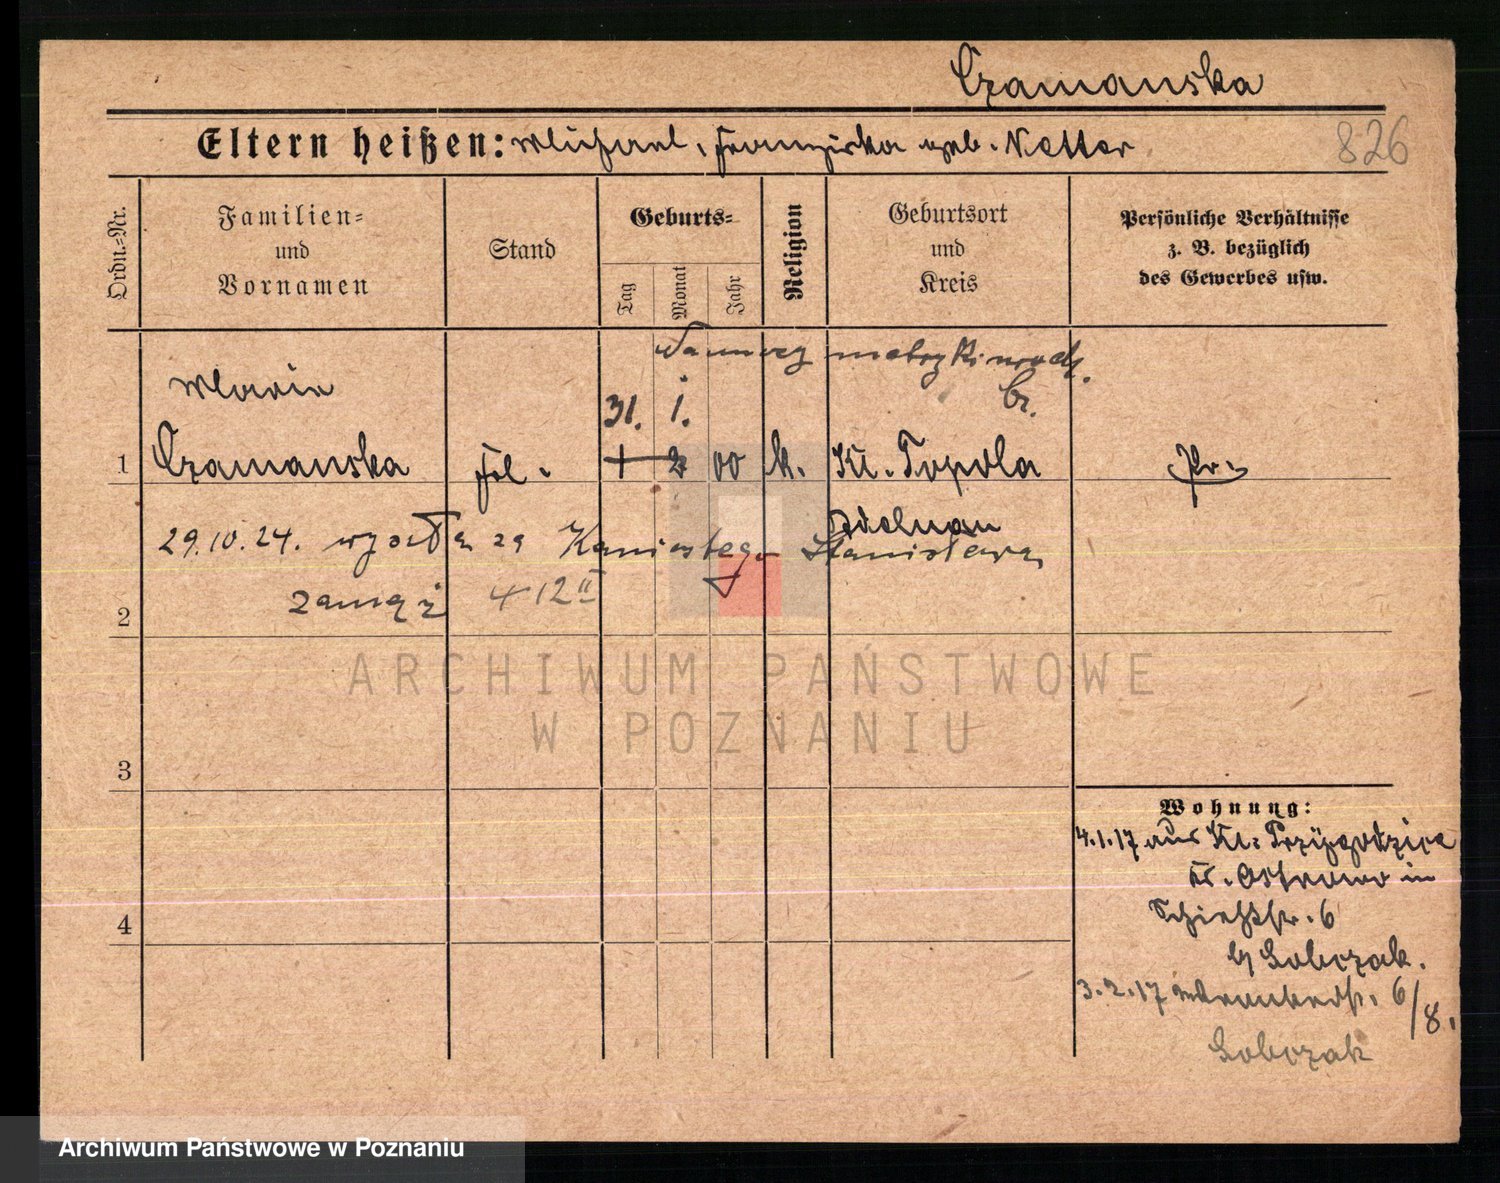 Czamanska
Eltern heißen: Michael, Franziska geb. Natter
826
Ordn.-Nr.
Familien-
und
Vornamen
Stand
Geburts-
Tag
Monat
Jahr
Religion
Geburtsort
und
Kreis
Persönliche Verhältnisse
z. B. bezüglich
des Gewerbes usw.
Maria
31. 1.
1 Czamanska 1 2 00 k. Kl. Topola
Pr.
Adelnau
29.10.24. wyszła za Stanisława
zamąż 412 II
2
3
4
Wohnung:
4.1.17 aus Kl. Przygodzice
Kr. Ostrowo in
Schießstr. 6
b/ Sobczak.
3.2.17 6/8.
Sobczak
ARCHIWUM PAŃSTWOWE
W POZNANIU
Archiwum Państwowe w Poznaniu